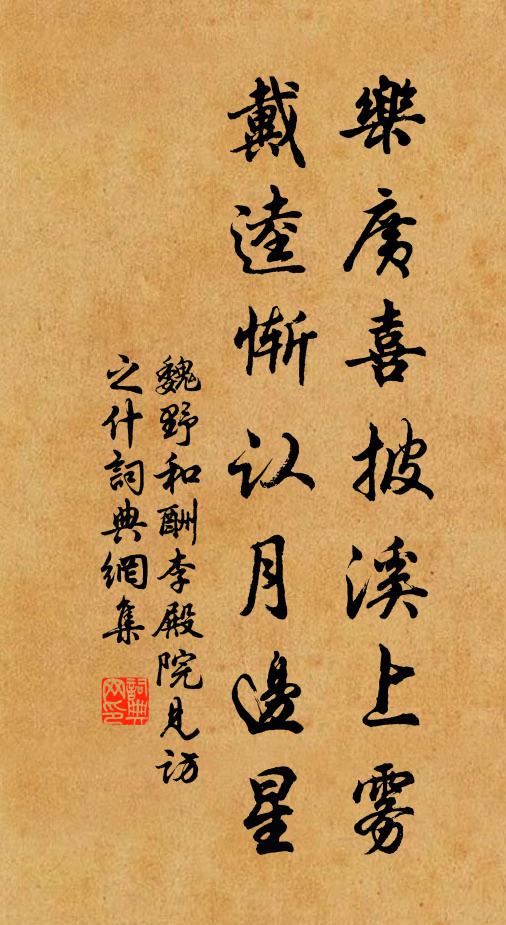 樂廣喜披溪上雾
戴逵惭认月邊星
魏野和酬李殿院見访
之什詞典網集
詞典網印